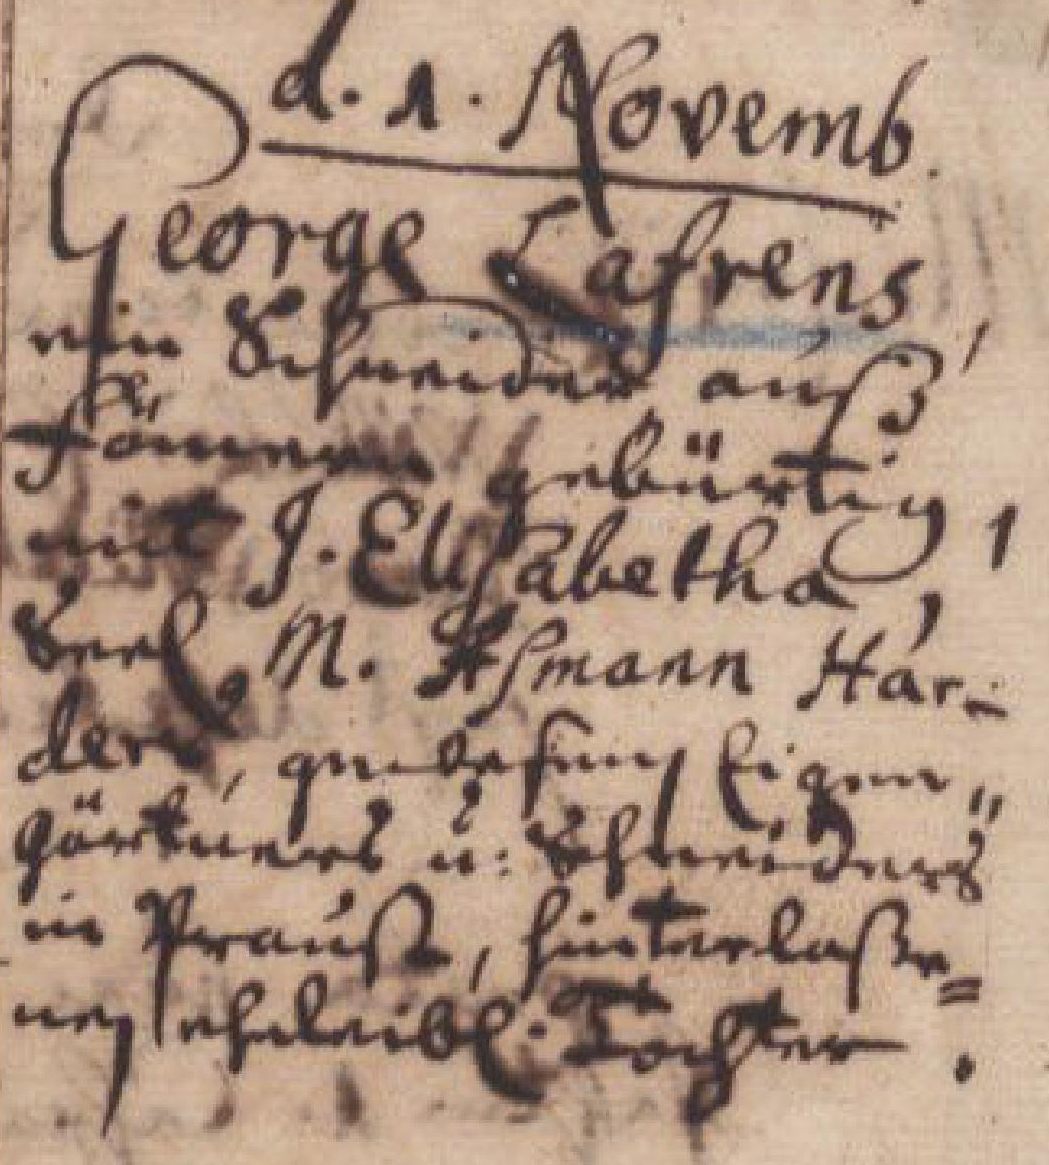 d. 1. Novemb.
George Lafrens,
ein Schneider auß
gebürtig
mit J. Elisabetha,
Seel. M. Aßmann Har-
ders, gewesenen Eigen-
gärtners u. Schneiders
in Praust, hinterlaße=
nen ehleibl. Tochter.